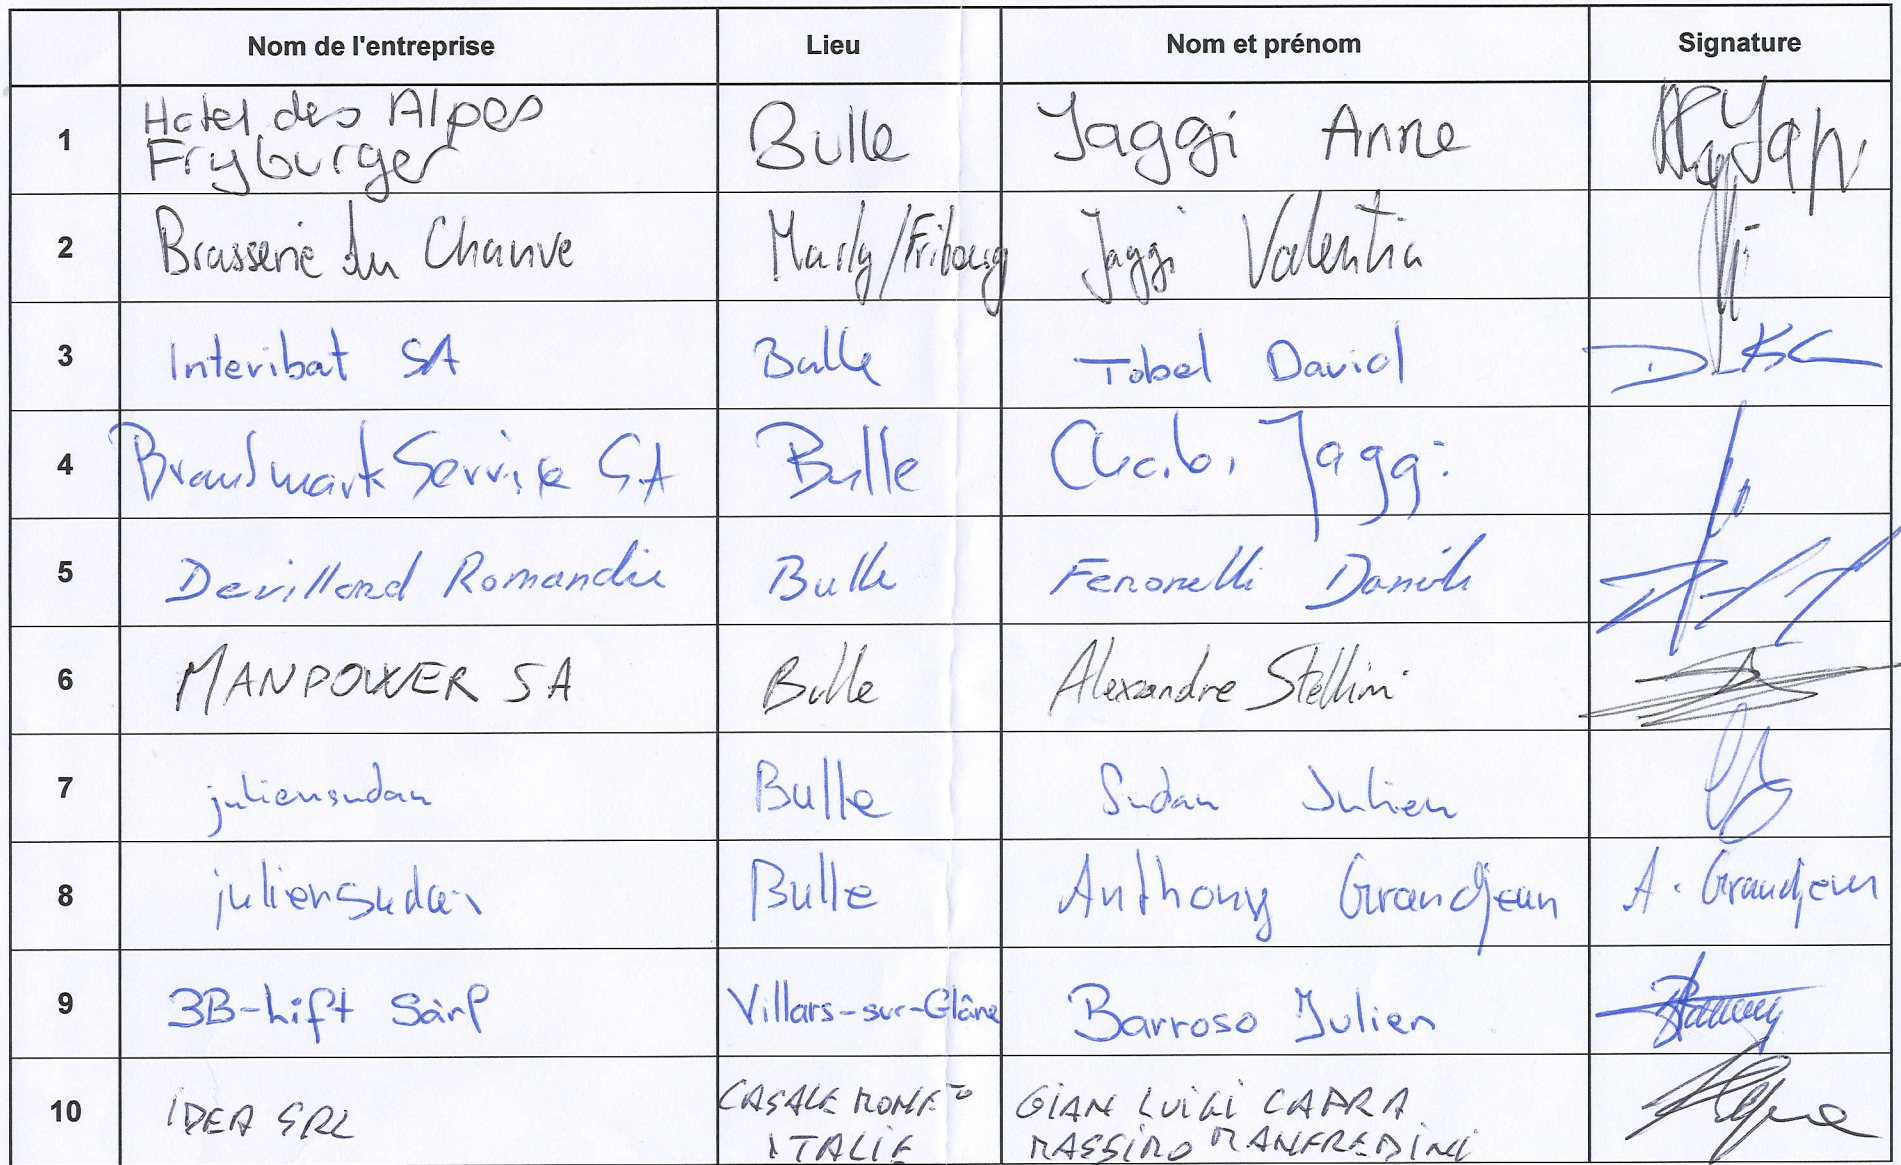 Nom de l'entreprise Lieu Nom et prénom Signature
1 Hotel des Alpes Fryburger Bulle Jaggi Anne
2 Brasserie du Chauve Marly/Fribourg Jaggi Valentin
3 Interibat SA Bulle Tobel David
4 Brandmark Service SA Bulle Jaggi
5 Devillard Romandie Bulle Danièle
6 MANPOWER SA Bulle Alexandre Stellini
7 juliensudan Bulle Sudan Julien
8 juliensudan Bulle Anthony Grandjean A. Grandjean
9 3B-Lift Sàrl Villars-sur-Glâne Barroso Julien
10 IDEA SRL CASALE MONF TO ITALIE GIAN LUIGI CAPRA MASSIMO MANFREDINI